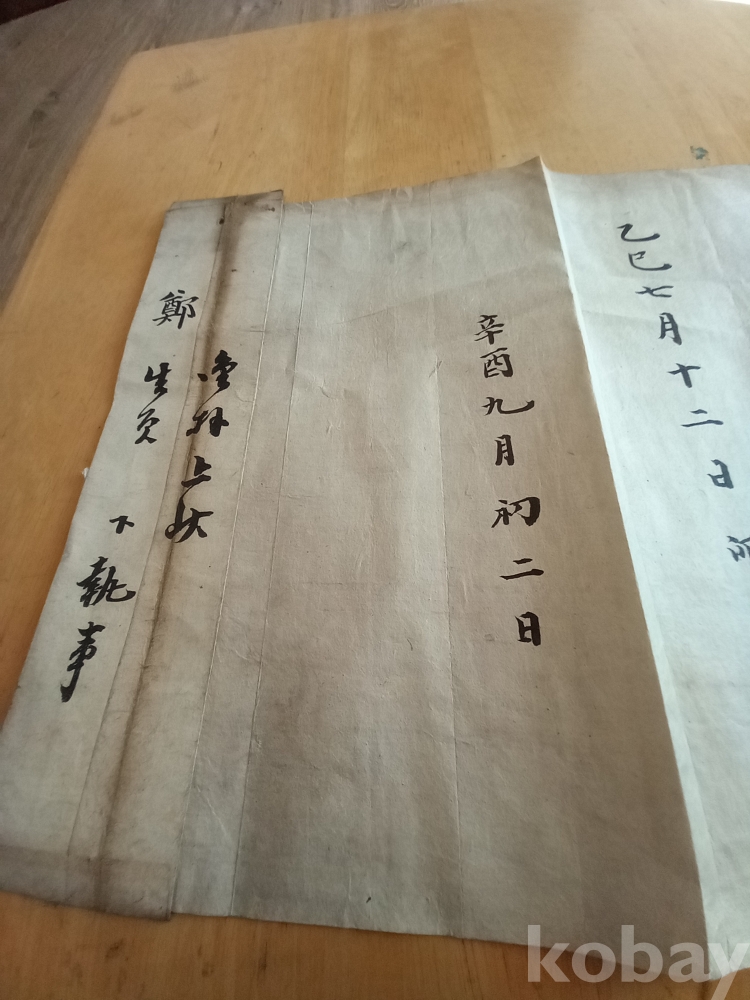 乙巳七月十二日
辛酉九月初二日
謹拜上狀
鄭 生員 下執事
kobay